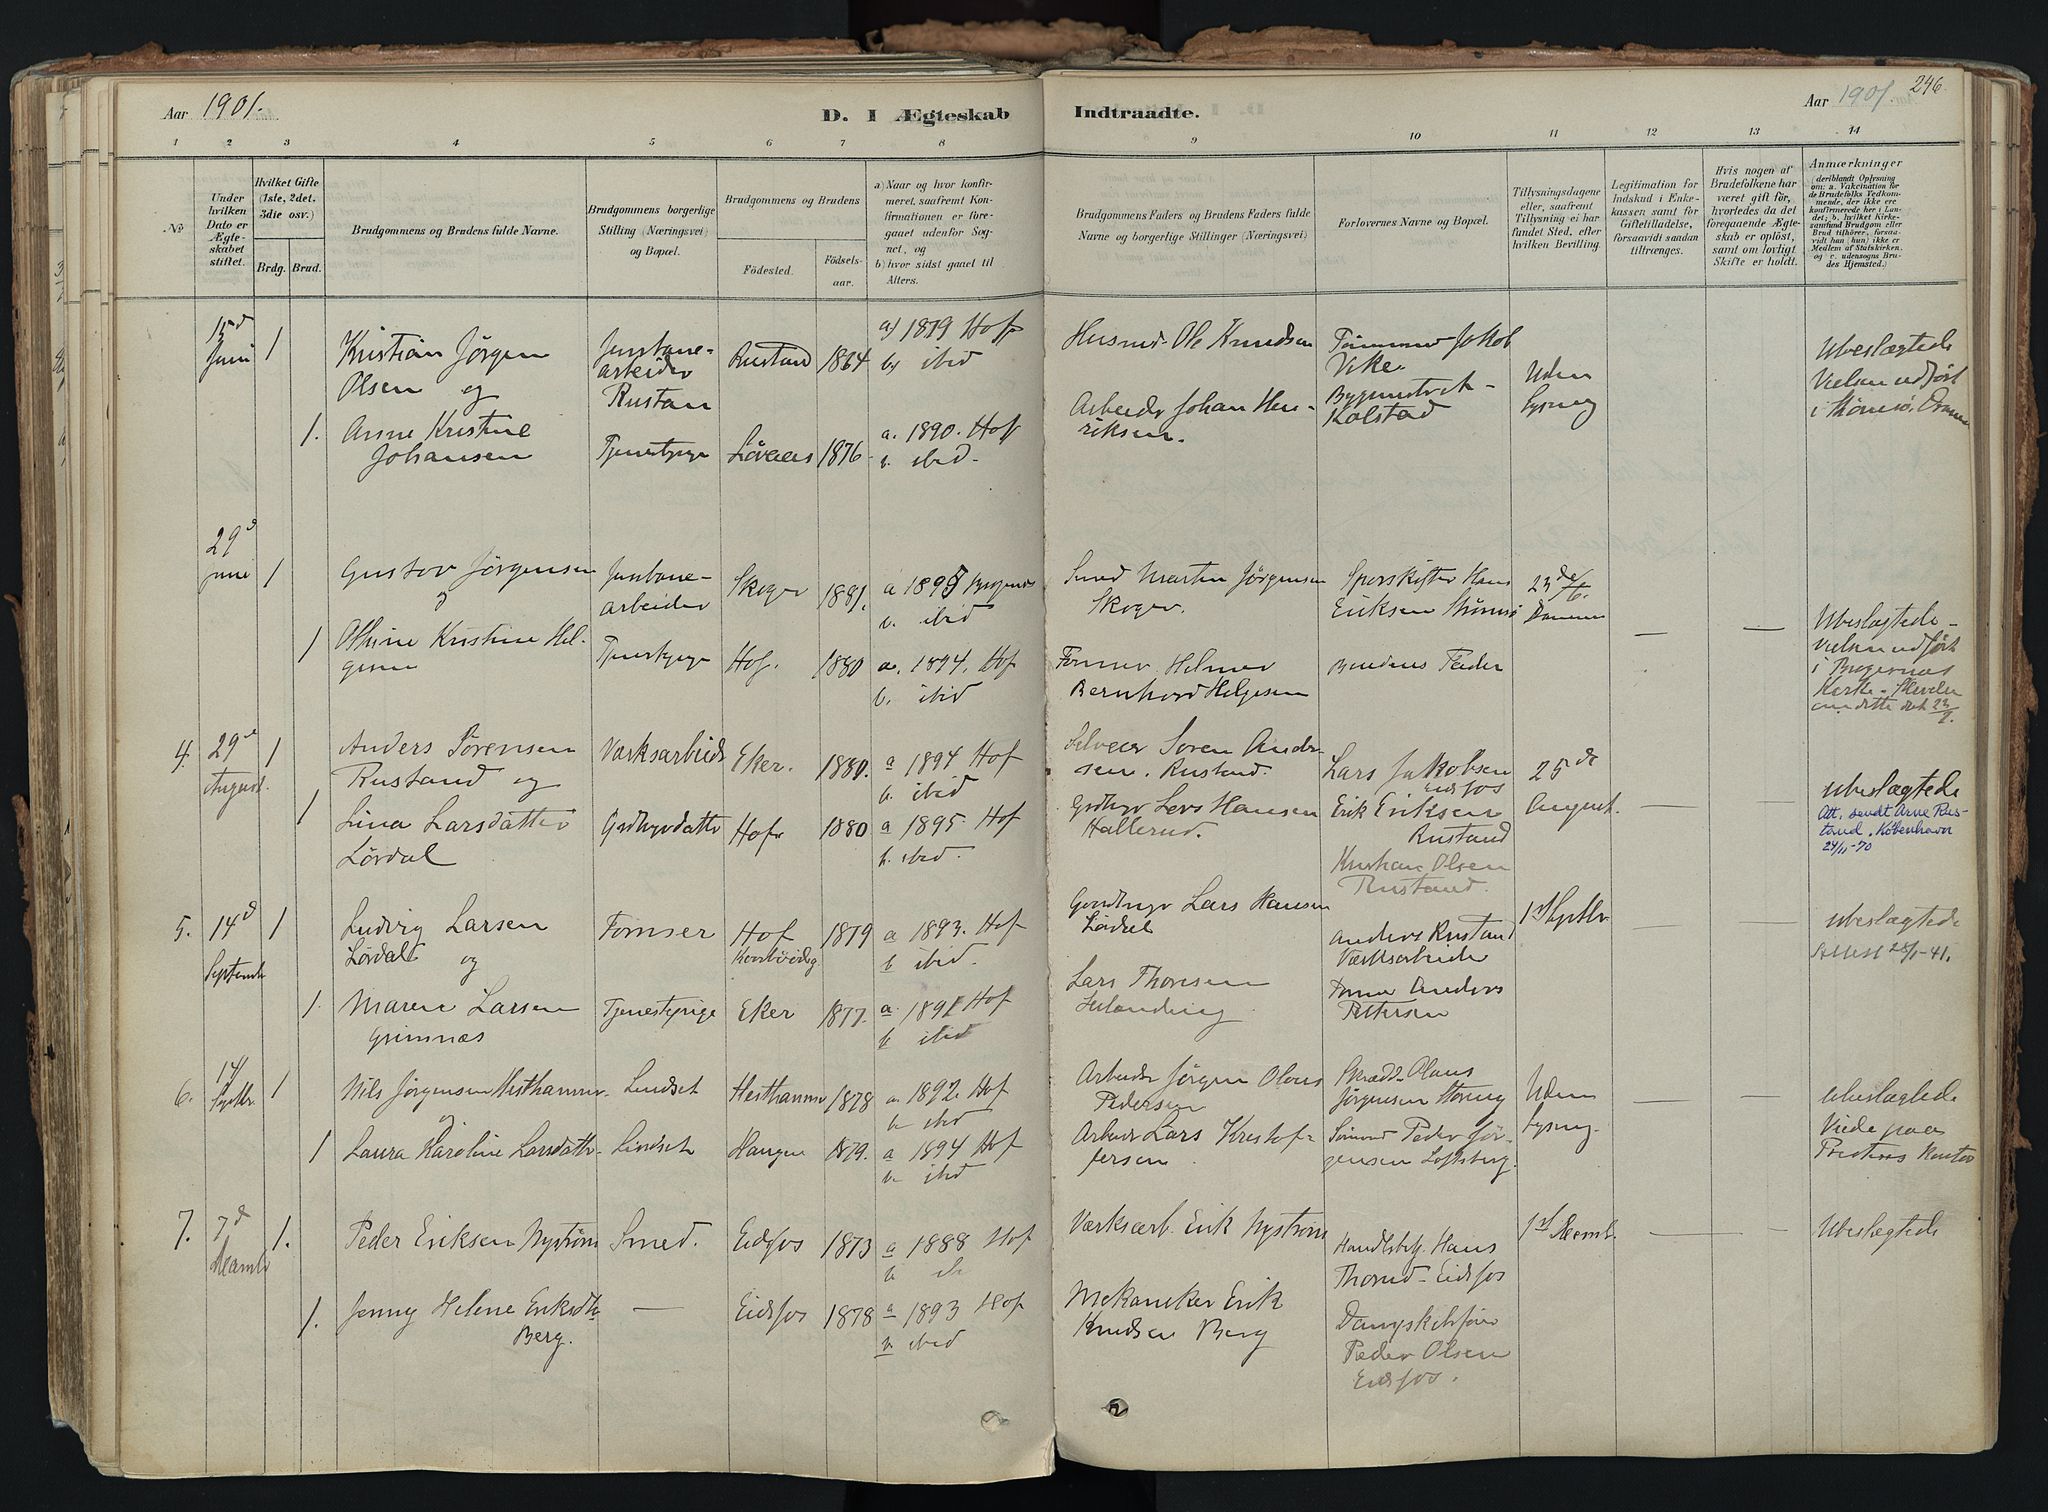 Aar 1901.
D. I Ægteskab
Indtraadte.
Aar 1901.
246
1 2 3 4 5 6 7 8 9 10 11 12 13 14
No
Under
hvilken
Dato er
Ægte-
skabet
stiftet.
Hvilket Gifte
(1ste, 2det.
3die osv.)
Brdg. Brud.
Brudgommens og Brudens fulde Navne.
Brudgommens borgerlige
Stilling (Næringsvei)
og Bopæl.
Brudgommens og Brudens
Födested.
Födsels-
aar.
a) Naar og hvor konfir-
meret, saafremt Kon-
firmationen er fore-
gaaet udenfor Sog-
net, og
b) hvor sidst gaaet til
Alters.
Brudgommens Faders og Brudens Faders fulde
Navne og borgerlige Stillinger (Næringsvei)
Forlovernes Navne og Bopæl.
Tillysningsdagene
eller, saafremt
Tillysning ei har
fundet Sted, efter
hvilken Bevilling.
Legitimation for
Indskud i Enke-
kassen samt for
Giftetilladelse,
forsaavidt saadan
tiltrænges.
Hvis nogen af
Brudefolkene har
været gift för,
hvorledes da det
foregaaende Ægte-
skab er oplöst,
samt om lovligt
Skifte er holdt.
Anmærkninger
(deriblandt Oplysning
om: a. Vakcination for
de Brudefolks Vedkom-
mende, der ikke ere
konfirmerede her i Lan-
det; b. hvilket Kirke-
samfund Brudgom eller
Brud tilhörer, forsaa-
vidt han (hun) ikke er
Medlem af Statskirken.
og c. udensogns Bru-
des Hjemsted.)
15d
Juni
1
Kristian Jörgen
Olsen og
Jernbane-
arbeider
Rustan
Rustad 1864
a) 1879 Hof
b) ibid
Husmd. Ole Knudsen
Tömmermd Jakob
Vike
Uden
Lysning
Ubeslægtede
Vielsen udfört
i Strömsö, Drammen
1.
Anne Kristine
Johansen
Tjenestepige
1876
a. 1890. Hof
b. ibid.
Arbeider Johan Hen-
riksen.
Kolstad
29d
June
1
Gustav Jörgensen
og
Jernbane-
arbeider
Skoger 1881.
a 1895 Bragernes
b. ibid
Smed Martin Jörgensen
Skoger.
Sporskifter Hans
Eriksen Strömsö
23de/6.
Drammen
Ubeslægtede -
Vielsen udfört
i Bragernes
Kirke.
1
Othine Kristine Hel-
gesen
Tjenestepige
Hof. 1880
a. 1894. Hof
b. ibid
Former Helmer
Bernhard Helgesen
Brudens Fader
4. 29d
August.
1
Anders Sörensen
Rustand og
Værksarbeider
Eker. 1880.
a 1894 Hof
b. ibid
Selveier Soren Ander-
sen. Rustand.
Lars Jakobsen
Eidsfos
25de
August.
ubeslægtede
1
Lina Larsdatter
Lördal
Grdbrdatter
Hof 1880
a 1895. Hof
b. ibid.
Grdbrgr Lars Hansen
Hallerud.
Erik Eriksen
Rustand
Kristian Olsen
Rustand.
Att. sendt Arne Rus-
tand. København
24/11-70
5. 14d
Septembr
1
Ludvig Larsen
Lördal og
Former
Hof 1879
a 1893. Hof
b ibid.
Gaardbrgr Lars Hansen
Lördal
Anders Rustand
Værksarbeider
1st Septbr.
ubeslægtede
Attest 28/1-41.
1.
Maren Larsen
Grimnæs
Tjenestepige
Eker 1877.
a. 1892 Hof
b ibid
Lars Thoresen
Former Anders
Pettersen
6. 14
Septbr.
1
Nils Jörgensen Hesthammer
og
Lindset
Hesthammer 1878
a. 1892. Hof
b. ibid
Arbeider Jörgen Olaus
Pedersen
Skrædd. Olaus
Jörgensen
Uden
Lysning.
ubeslægtede
Viede paa
Prestens Kontor
1
Laura Karoline Larsdattr.
Lindset
Haugen 1879.
a 1894 Hof
b. ibid
Arbeider Lars Kristof-
fersen
Peder Jör-
gensen Loftsberg.
7. 7d
Decembr
1.
Peder Eriksen Nyström
Smed.
Eidsfos 1873
a 1888 Hof
b. ib
Værksarb. Erik Nyström
Handlsbetj. Hans
Thorud - Eidsfos
1st Decemb.
Ubeslægtede
1.
Jenny Helene Eriksdtr.
Berg.
Eidsfos 1878
a 1893 Hof
b. ibid
Mekaniker Erik
Knudsen Berg
Peder Olsen
Eidsfos.